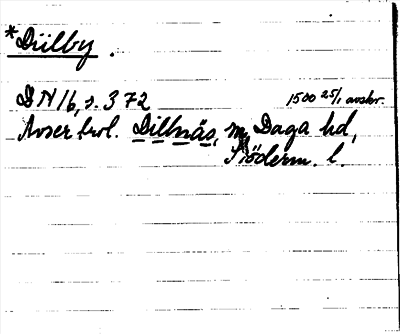 *Diilby.
DN 16, s. 372 1500 25/1 avskr.
Avser trol. Dillnäs, Daga hd,
Söderm. l.